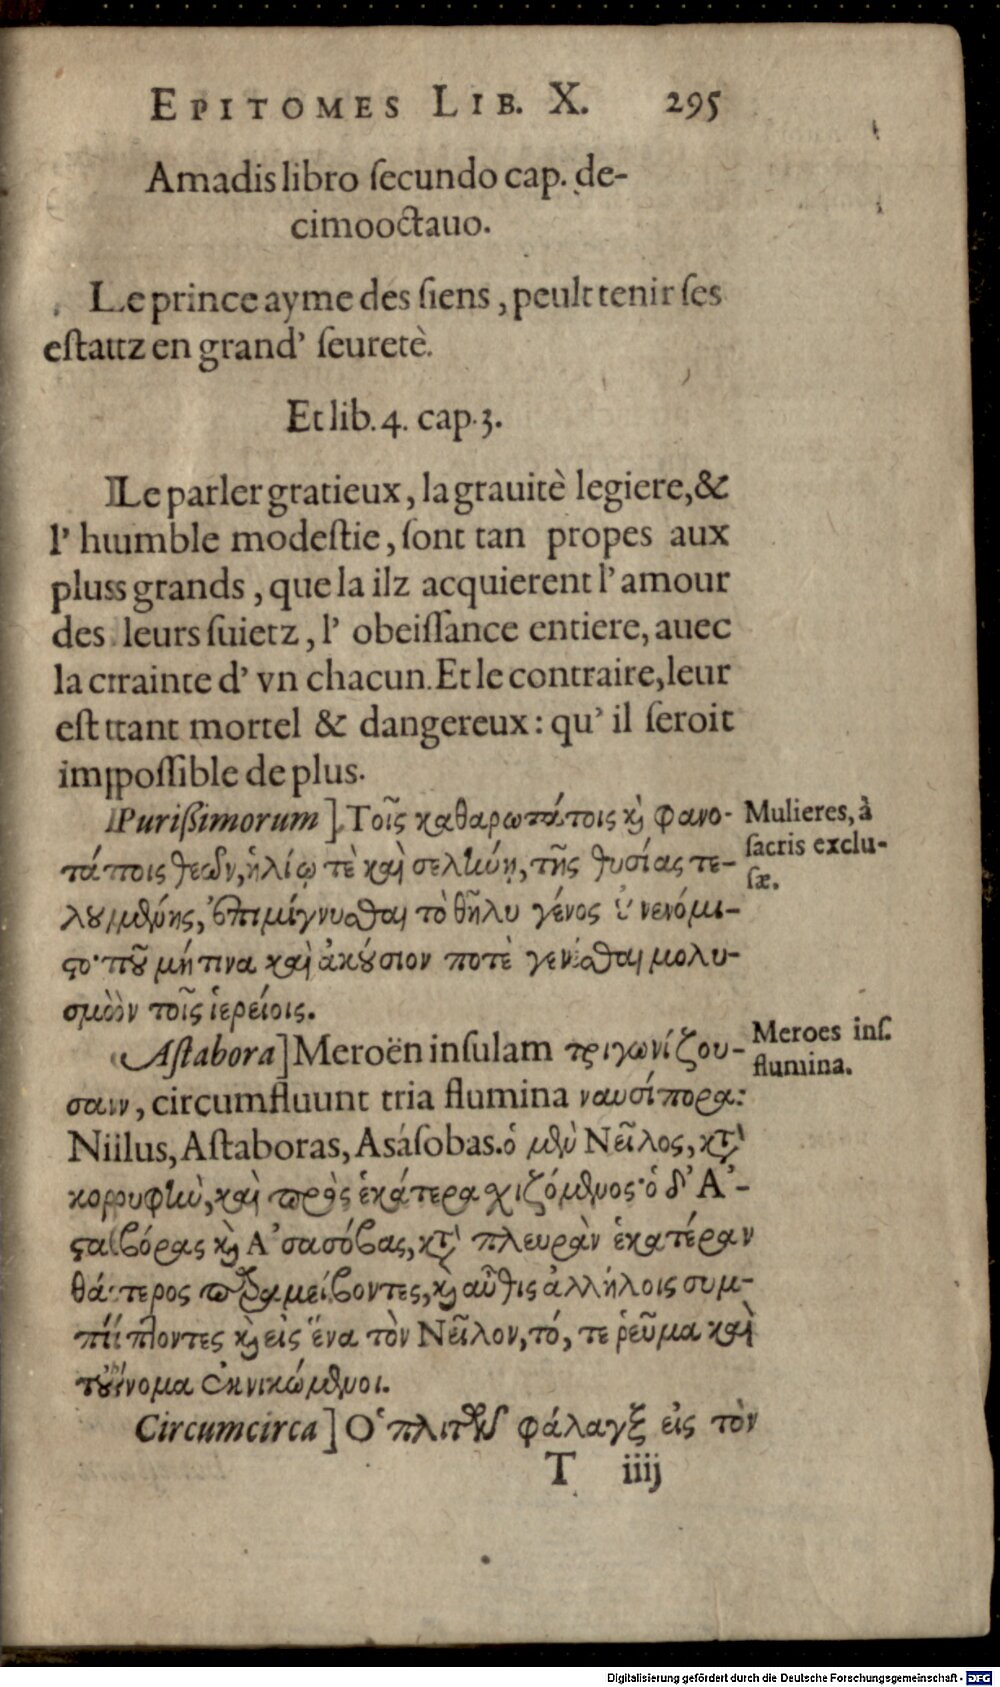 EPITOMES LIB. X. 295
Amadis libro ſecundo cap. de-
cimooctauo.
Le prince ayme des ſiens, peult tenir ſes
eſtattz en grand' ſeuretè.
Et lib. 4. cap. 3.
Le parler gratieux, la grauitè legiere, &
l' humble modeſtie, ſont tan propes aux
pluss grands, que la ilz acquierent l' amour
des leurs ſuietz, l' obeiſſance entiere, auec
la crrainte d' vn chacun. Et le contraire, leur
eſt ttant mortel & dangereux: qu' il ſeroit
impoſſible de plus.
Purißimorum] Τοῖς καθαρωτάτοις καὶ φανο-
Mulieres, à
ſacris exclu-
ſæ.
τάτοις θεῶν, ἡλίῳ τὲ καὶ σελήνῃ, τῆς θυσίας τε-
λουμένης, ἐπιμίγνυσθαι τὸ θῆλυ γένος οὐ νενόμι-
στο· τοῦ μή τινα καὶ ἀκούσιον ποτὲ γενέσθαι μολυ-
σμὸν τοῖς ἱερείοις.
Aſtabora] Meroën inſulam τριγωνίζου-
Meroes inſ.
flumina.
σαν, circumfluunt tria flumina ναυσίπορα:
Niilus, Aſtaboras, Asáſobas. ὁ μὲν Νεῖλος, κατὰ
κορρυφὴν, καὶ πρὸς ἑκάτερα χιζόμενος· ὁ δ' Α'-
σταβόρας καὶ Α'σασόβας, κατὰ πλευρὰν ἑκατέραν
θάτερος παραμείβοντες, καὶ αὖθις ἀλλήλοις συμ-
πίπτοντες καὶ εἰς ἕνα τὸν Νεῖλον, τό, τε ῥεῦμα καὶ
τοὔνομα ἐκνικώμενοι.
Circumcirca] Ὁπλιτῶν φάλαγξ εἰς τὸν
T iiij
Digitalisierung gefördert durch die Deutsche Forschungsgemeinschaft - DFG